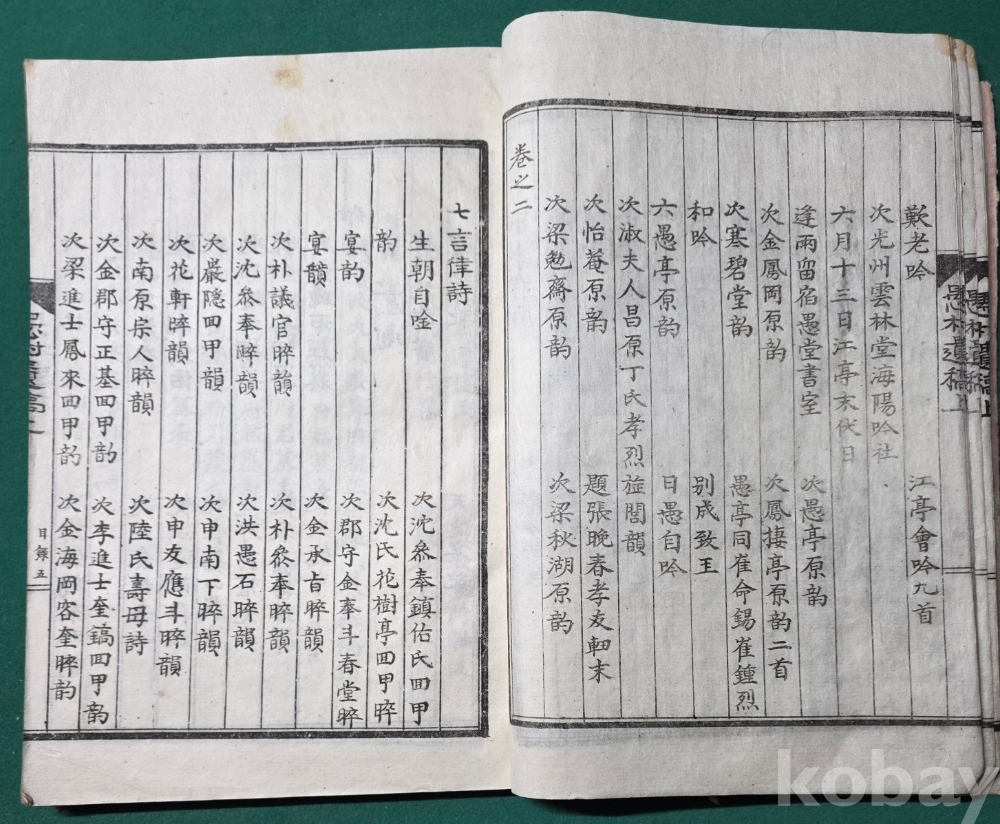 愚村遺稿上
歎老吟 江亭會吟九首
次光州雲林堂海陽吟社
六月十三日江亭末伏日
逢雨留宿愚堂書室 次愚亭原韵
次金鳳岡原韵 次鳳棲亭原韵二首
次寒碧堂韵 愚亭同崔命錫崔鍾烈
和吟 別成致玉
六愚亭原韵 日愚自吟
次淑夫人昌原丁氏孝烈旌閭韻
次怡菴原韵 題張晚春孝友軸末
次梁勉齋原韵 次梁秋湖原韵
卷之二
七言律詩
生朝自唫 次沈參奉鎮佑氏回甲
韵 次沈氏花樹亭回甲晬
宴韵 次郡守金奉斗春堂晬
宴韻 次金承旨晬韻
次朴議官晬韻 次朴參奉晬韻
次沈參奉晬韻 次洪愚石晬韻
次巖隐回甲韻 次申南下晬韻
次花軒晬韻 次申友應斗晬韻
次南原宗人晬韻 次陸氏壽母詩
次金郡守正基回甲韵 次李進士奎鎬回甲韵
次梁進士鳳來回甲韵 次金海岡容奎晬韵
目錄五
kobay